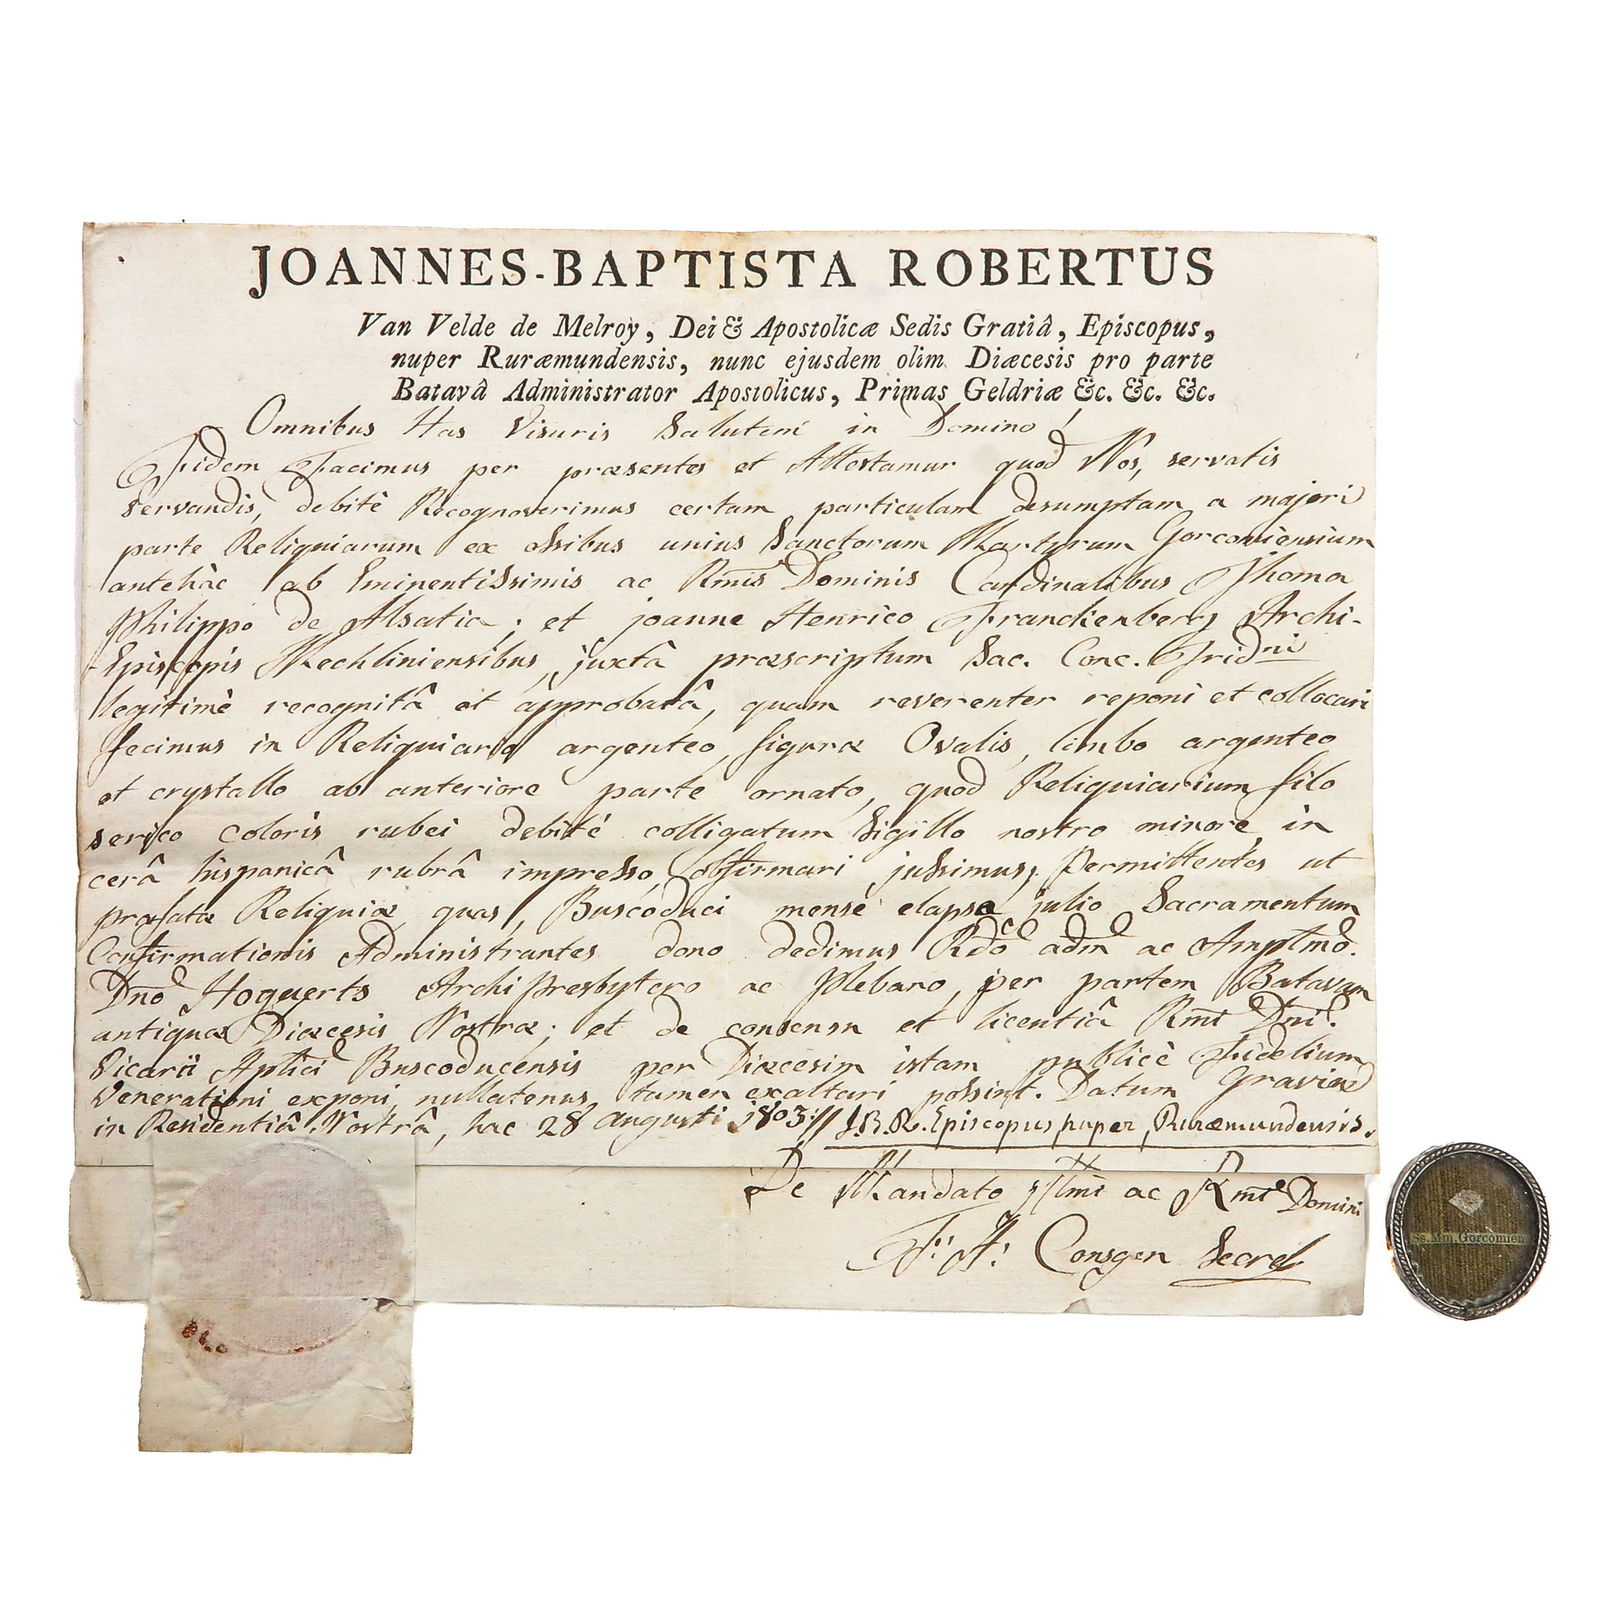 JOANNES-BAPTISTA ROBERTUS
Van Velde de Melroy, Dei & Apostolicæ Sedis Gratiâ, Episcopus,
nuper Ruræmundensis, nunc ejusdem olim Diæcesis pro parte
Batavâ Administrator Apostolicus, Primas Geldriæ &c. &c. &c.
Omnibus Has Visuris Salutem in Domino!
Fidem Facimus per præsentes et Attestamur quod Nos, servatis
Servandis, debitè Recognoverimus certam particulam desumptam a majori
parte Reliquiarum ex ossibus unius Sanctorum Martyrum Gorcomiensium
antehàc ab Eminentissimis ac Rmis Dominis Cardinalibus Thoma
Philippo de Alsatia; et joanne Henrico Franckenberg Archi-
Episcopis Mechliniensibus, juxtà præscriptum Sac. Conc. Tridni
legitimè recognitâ et approbatâ, quam reverenter reponi et collocari
fecimus in Reliquiario argenteo, figuræ Ovalis, limbo argenteo
et crystallo ab anteriore parte ornato, quod Reliquiarium filo
serico coloris rubei debitè colligatum Sigillo nostro minore in
cerâ hispanicâ rubrâ impresso, obfirmari jussimus; Permittentes ut
præfatæ Reliquiæ quas, Buscoduci mense elapso julio Sacramentum
Confirmationis Administrantes dono dedimus Rdo adm ac Amplmo.
Dno Hoguerts Archipresbytero ac Plebano, per partem Batavam
antiquæ Diæcesis Nostræ; et de consensu et licentiâ Rmi Dni.
Vicarii Aplici Buscoducensis per Diæcesim istam publicè Fidelium
Venerationi exponi, nullatenus tamen exaltari possint. Datum Graviæ
in Residentiâ Nostrâ, hac 28 augusti 1803 // J.B.R. Episcopus nuper Ruræmundensis.
De Mandato Illmi ac Rmi Domini
F: A: Consgen Secret
Ss. Mm. Gorcomien